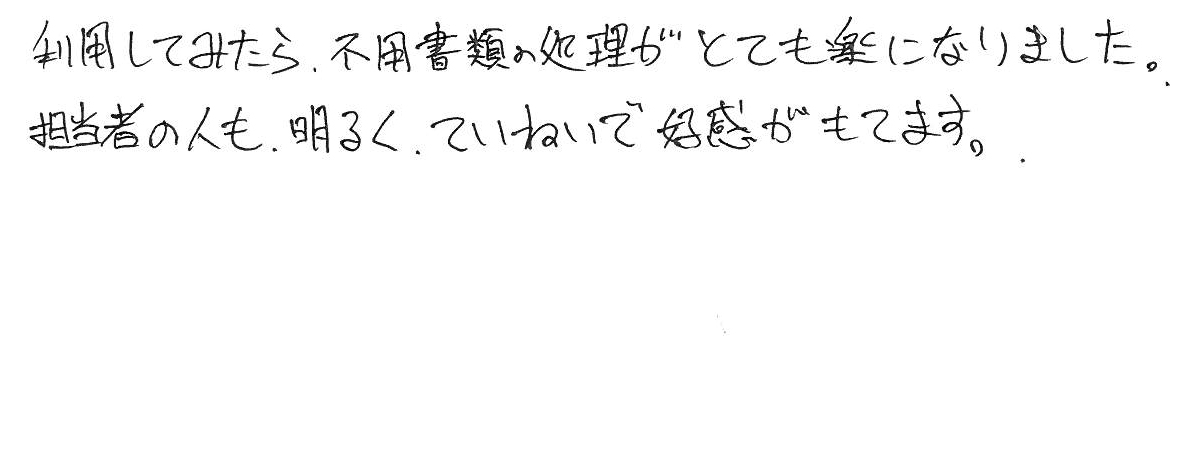 利用してみたら、不用書類の処理がとても楽になりました。
担当者の人も、明るく、ていねいで好感がもてます。